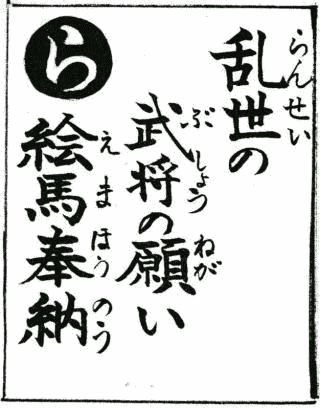 乱世の
らんせい
武将の願い
ぶしょう ねが
絵馬奉納
えまほうのう
ら